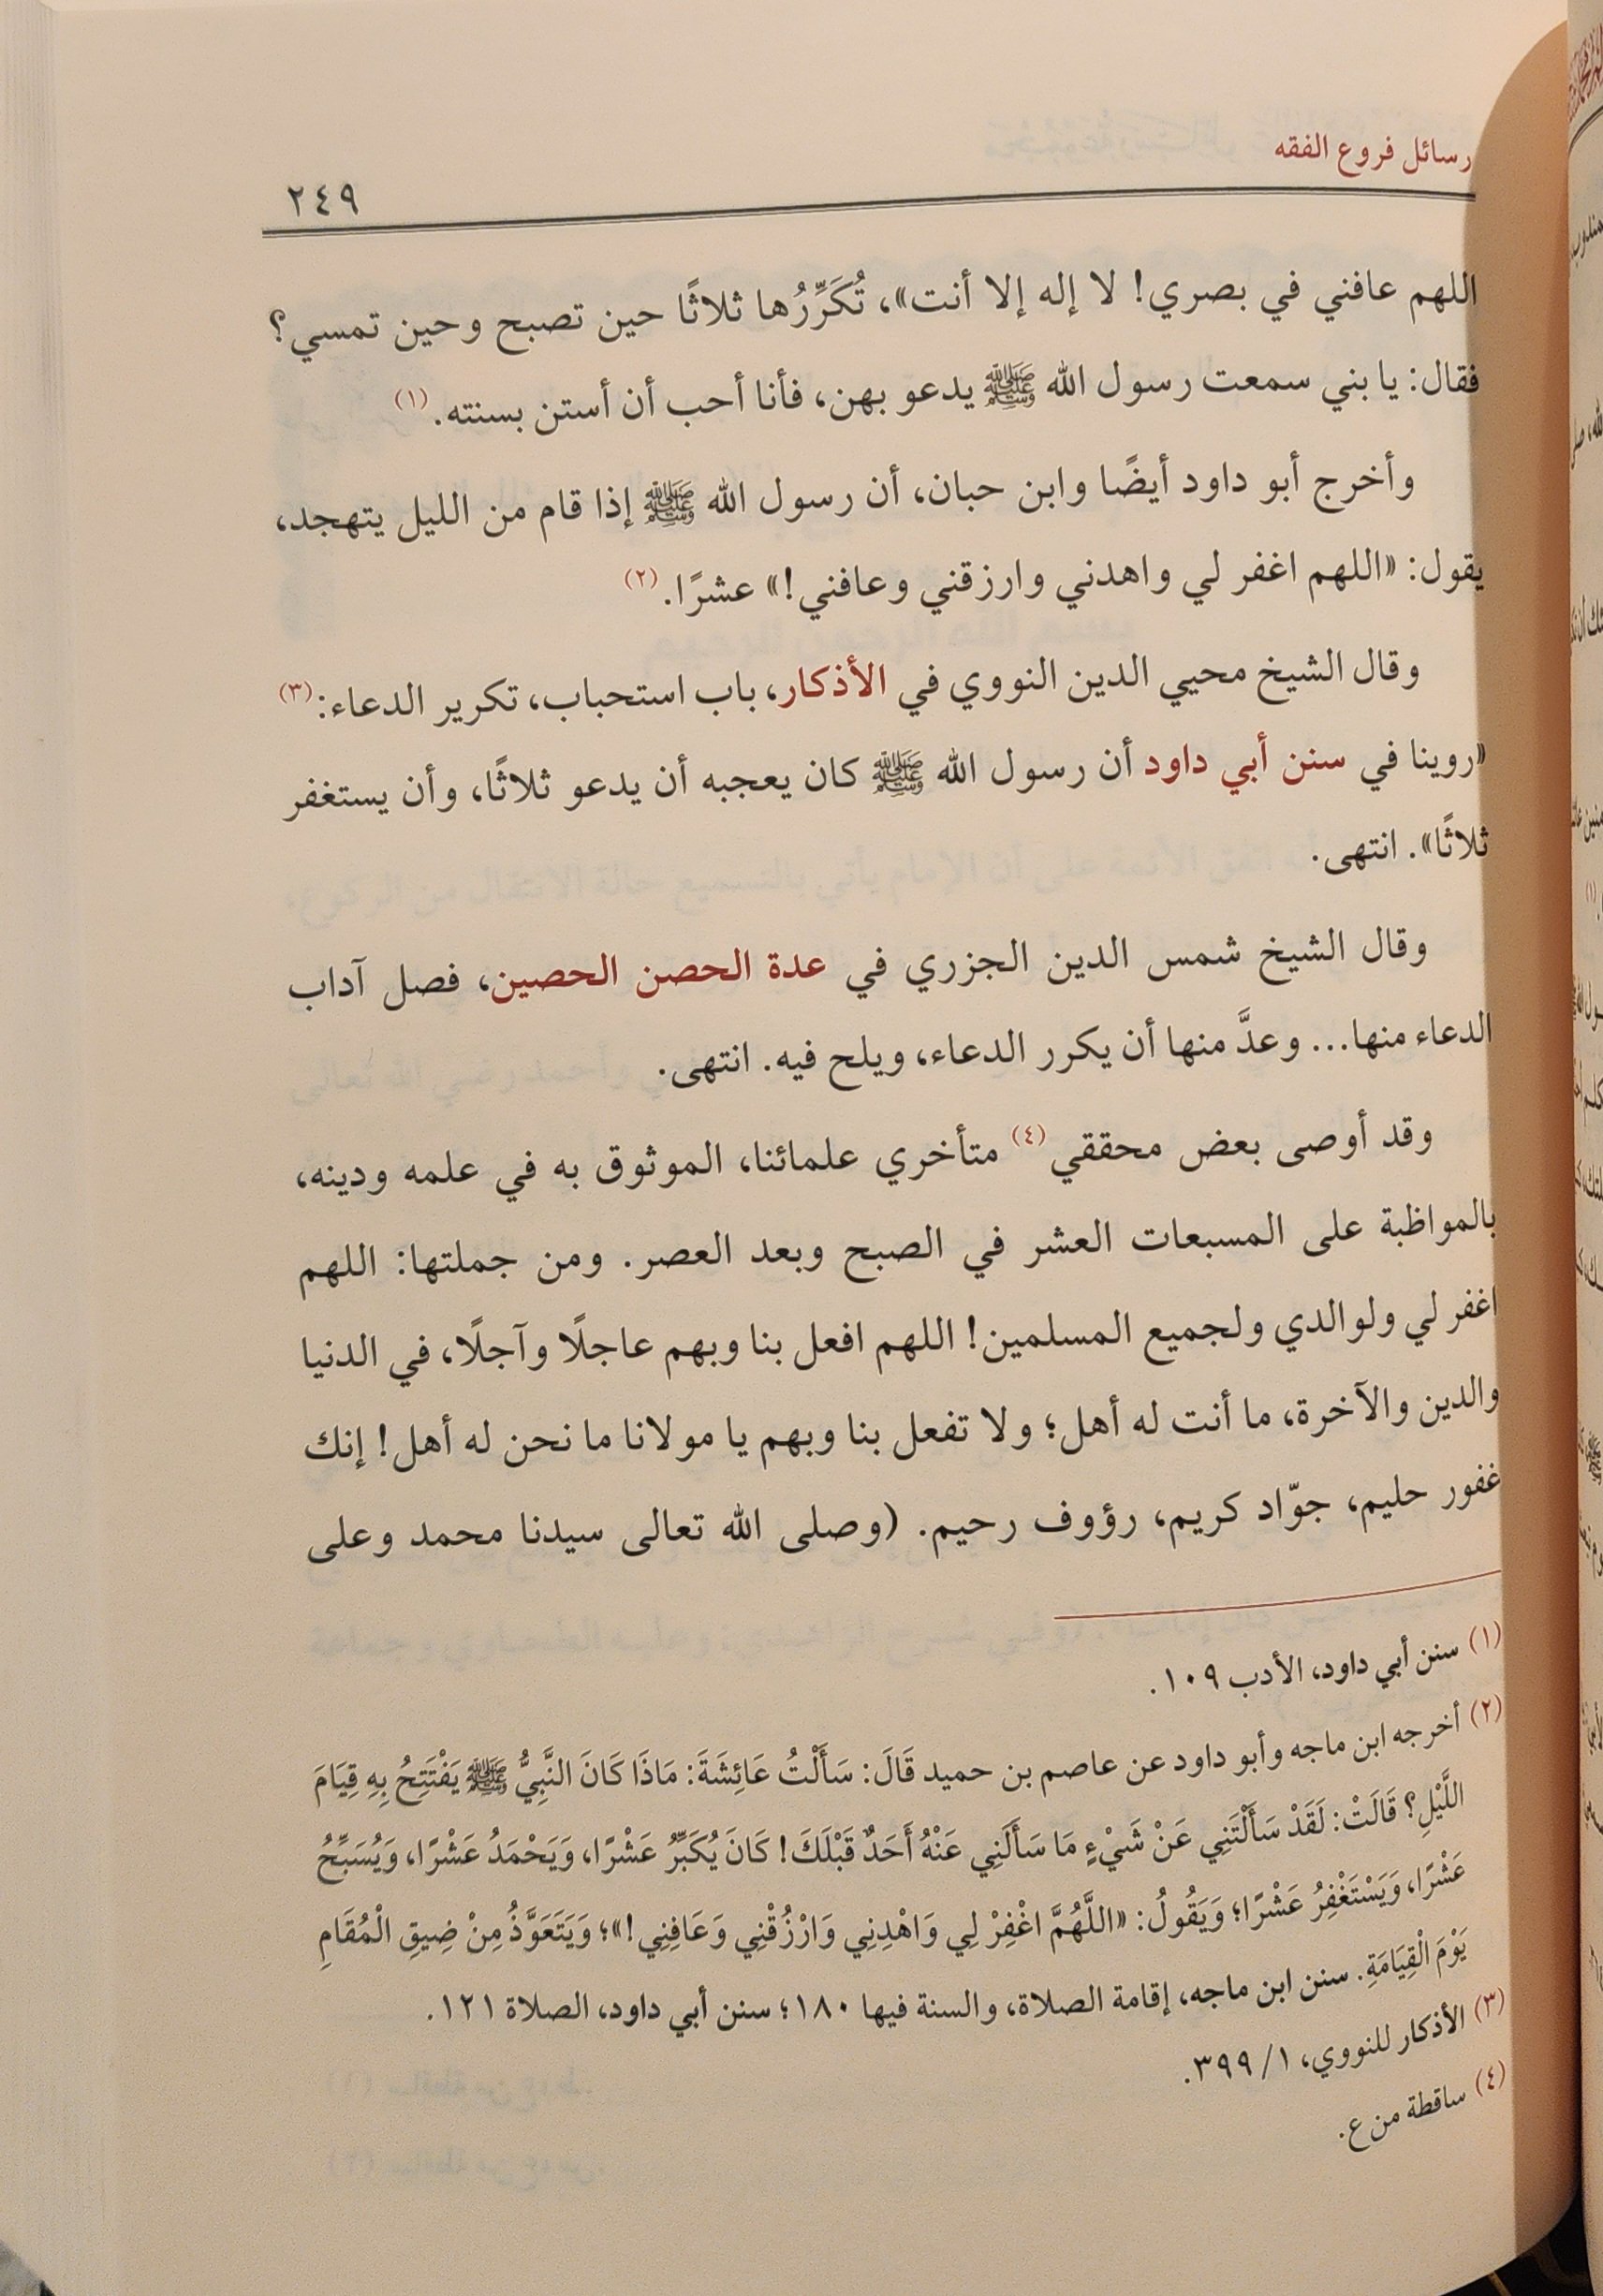 رسائل فروع الفقه
٢٤٩
اللهم عافني في بصري! لا إله إلا أنت»، تُكَرِّرُها ثلاثًا حين تصبح وحين تمسي؟
فقال: يا بني سمعت رسول الله ﷺ يدعو بهن، فأنا أحب أن أستن بسنته.(١)
وأخرج أبو داود أيضًا وابن حبان، أن رسول الله ﷺ إذا قام من الليل يتهجد،
يقول: «اللهم اغفر لي واهدني وارزقني وعافني!» عشرًا.(٢)
وقال الشيخ محيي الدين النووي في الأذكار، باب استحباب، تكرير الدعاء:(٣)
«روينا في سنن أبي داود أن رسول الله ﷺ كان يعجبه أن يدعو ثلاثًا، وأن يستغفر
ثلاثًا». انتهى.
وقال الشيخ شمس الدين الجزري في عدة الحصن الحصين، فصل آداب
الدعاء منها... وعدَّ منها أن يكرر الدعاء، ويلح فيه. انتهى.
وقد أوصى بعض محققي(٤) متأخري علمائنا، الموثوق به في علمه ودينه،
بالمواظبة على المسبعات العشر في الصبح وبعد العصر. ومن جملتها: اللهم
اغفر لي ولوالدي ولجميع المسلمين! اللهم افعل بنا وبهم عاجلًا وآجلًا، في الدنيا
والدين والآخرة، ما أنت له أهل؛ ولا تفعل بنا وبهم يا مولانا ما نحن له أهل! إنك
غفور حليم، جوّاد كريم، رؤوف رحيم. (وصلى الله تعالى سيدنا محمد وعلى
(١) سنن أبي داود، الأدب ١٠٩.
(٢) أخرجه ابن ماجه وأبو داود عن عاصم بن حميد قَالَ: سَأَلْتُ عَائِشَةَ: مَاذَا كَانَ النَّبِيُّ ﷺ يَفْتَتِحُ بِهِ قِيَامَ
اللَّيْلِ؟ قَالَتْ: لَقَدْ سَأَلْتَنِي عَنْ شَيْءٍ مَا سَأَلَنِي عَنْهُ أَحَدٌ قَبْلَكَ! كَانَ يُكَبِّرُ عَشْرًا، وَيَحْمَدُ عَشْرًا، وَيُسَبِّحُ
عَشْرًا، وَيَسْتَغْفِرُ عَشْرًا؛ وَيَقُولُ: «اللَّهُمَّ اغْفِرْ لِي وَاهْدِنِي وَارْزُقْنِي وَعَافِنِي!»؛ وَيَتَعَوَّذُ مِنْ ضِيقِ الْمُقَامِ
يَوْمَ الْقِيَامَةِ. سنن ابن ماجه، إقامة الصلاة، والسنة فيها ١٨٠؛ سنن أبي داود، الصلاة ١٢١.
(٣) الأذكار للنووي، ١/ ٣٩٩.
(٤) ساقطة من ع.